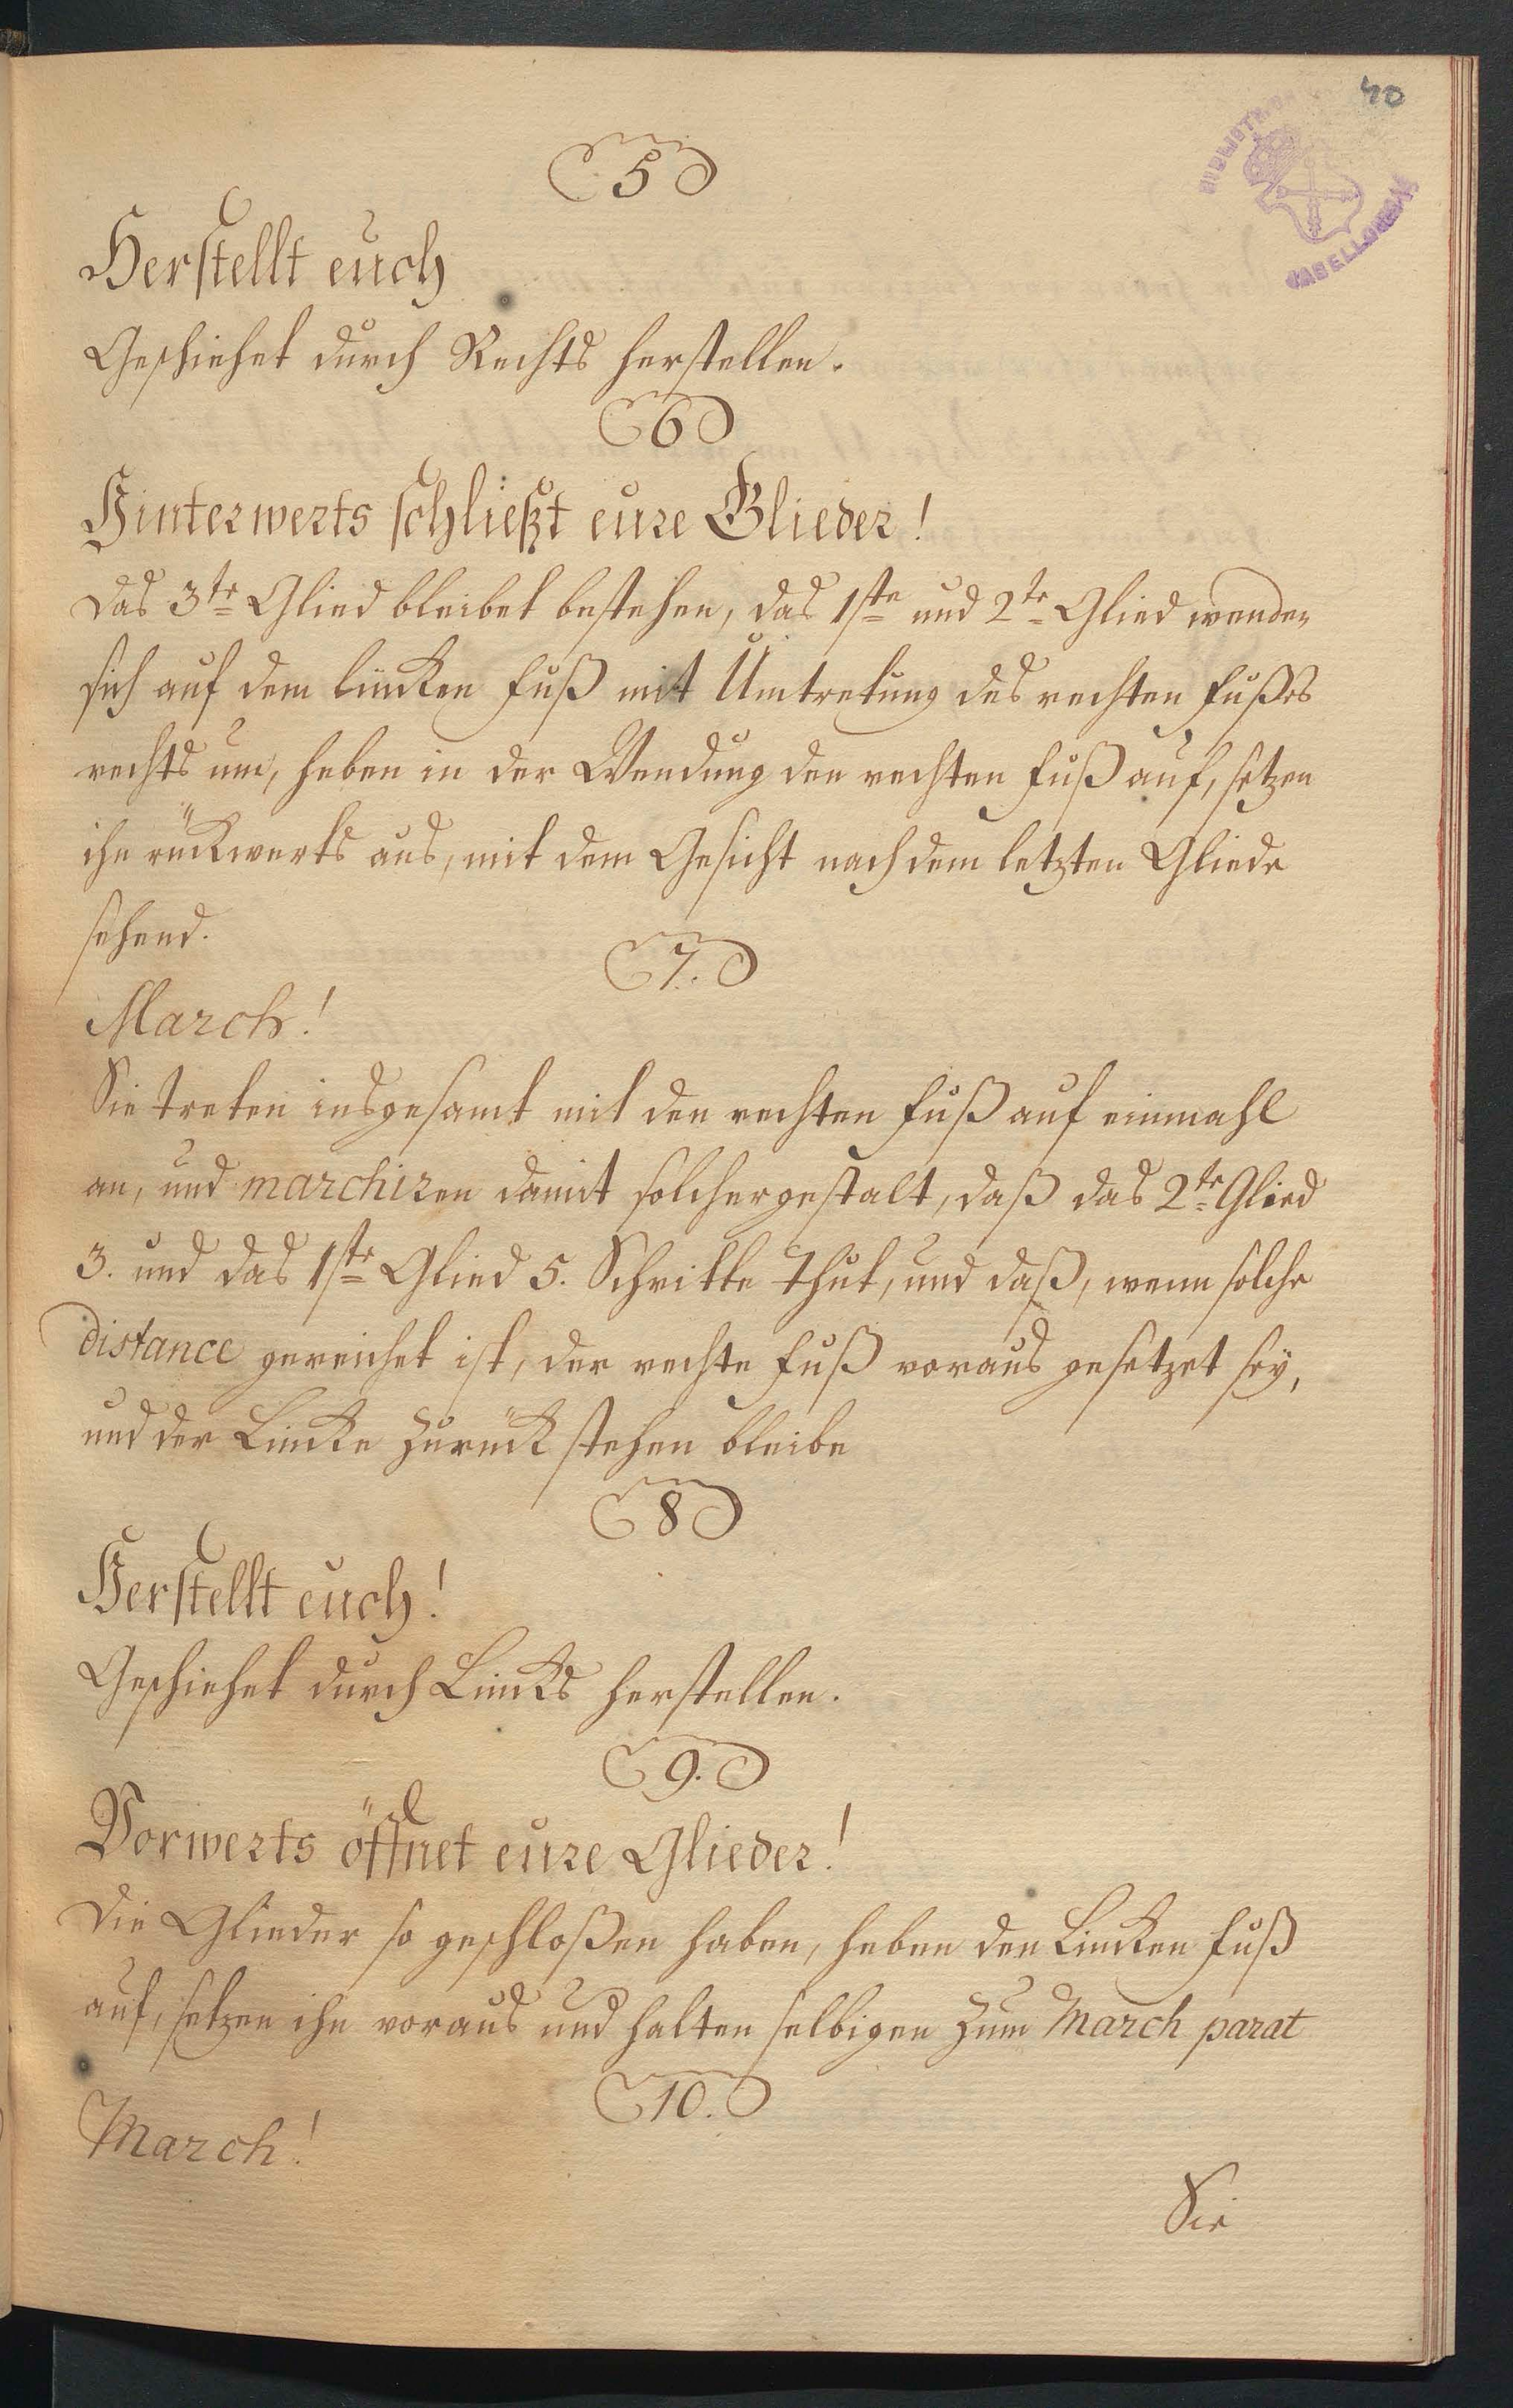 40
5
Herstellt euch
Geschiehet durch Rechts herstellen.
6
Hinterwerts schließt eure Glieder!
Das 3te Glied bleibet bestehen, das 1ste und 2te Glied wenden
sich auf dem lincken Fuß mit Umtretung des rechten Fußes
rechts um, heben in der Wendung den rechten Fuß auf, setzen
ihn rückwerts aus, mit dem Gesicht nach dem letzten Gliede
sehend.
7.
March!
Sie treten insgesamt mit den rechten Fuß auf einmahl
an, und marchiren damit solchergestalt, daß das 2te Glied
3. und das 1ste Glied 5. Schritte thut, und daß, wenn solche
distance gereichet ist, der rechte Fuß voraus gesetzet sey,
und der Lincke zurück stehen bleibe
8
Herstellt euch!
Geschiehet durch Lincks herstellen.
9.
Vorwerts öffnet eure Glieder!
Die Glieder so geschloßen haben, heben den Lincken Fuß
auf, setzen ihn voraus und halten selbigen zum March parat
10.
March!
Sie